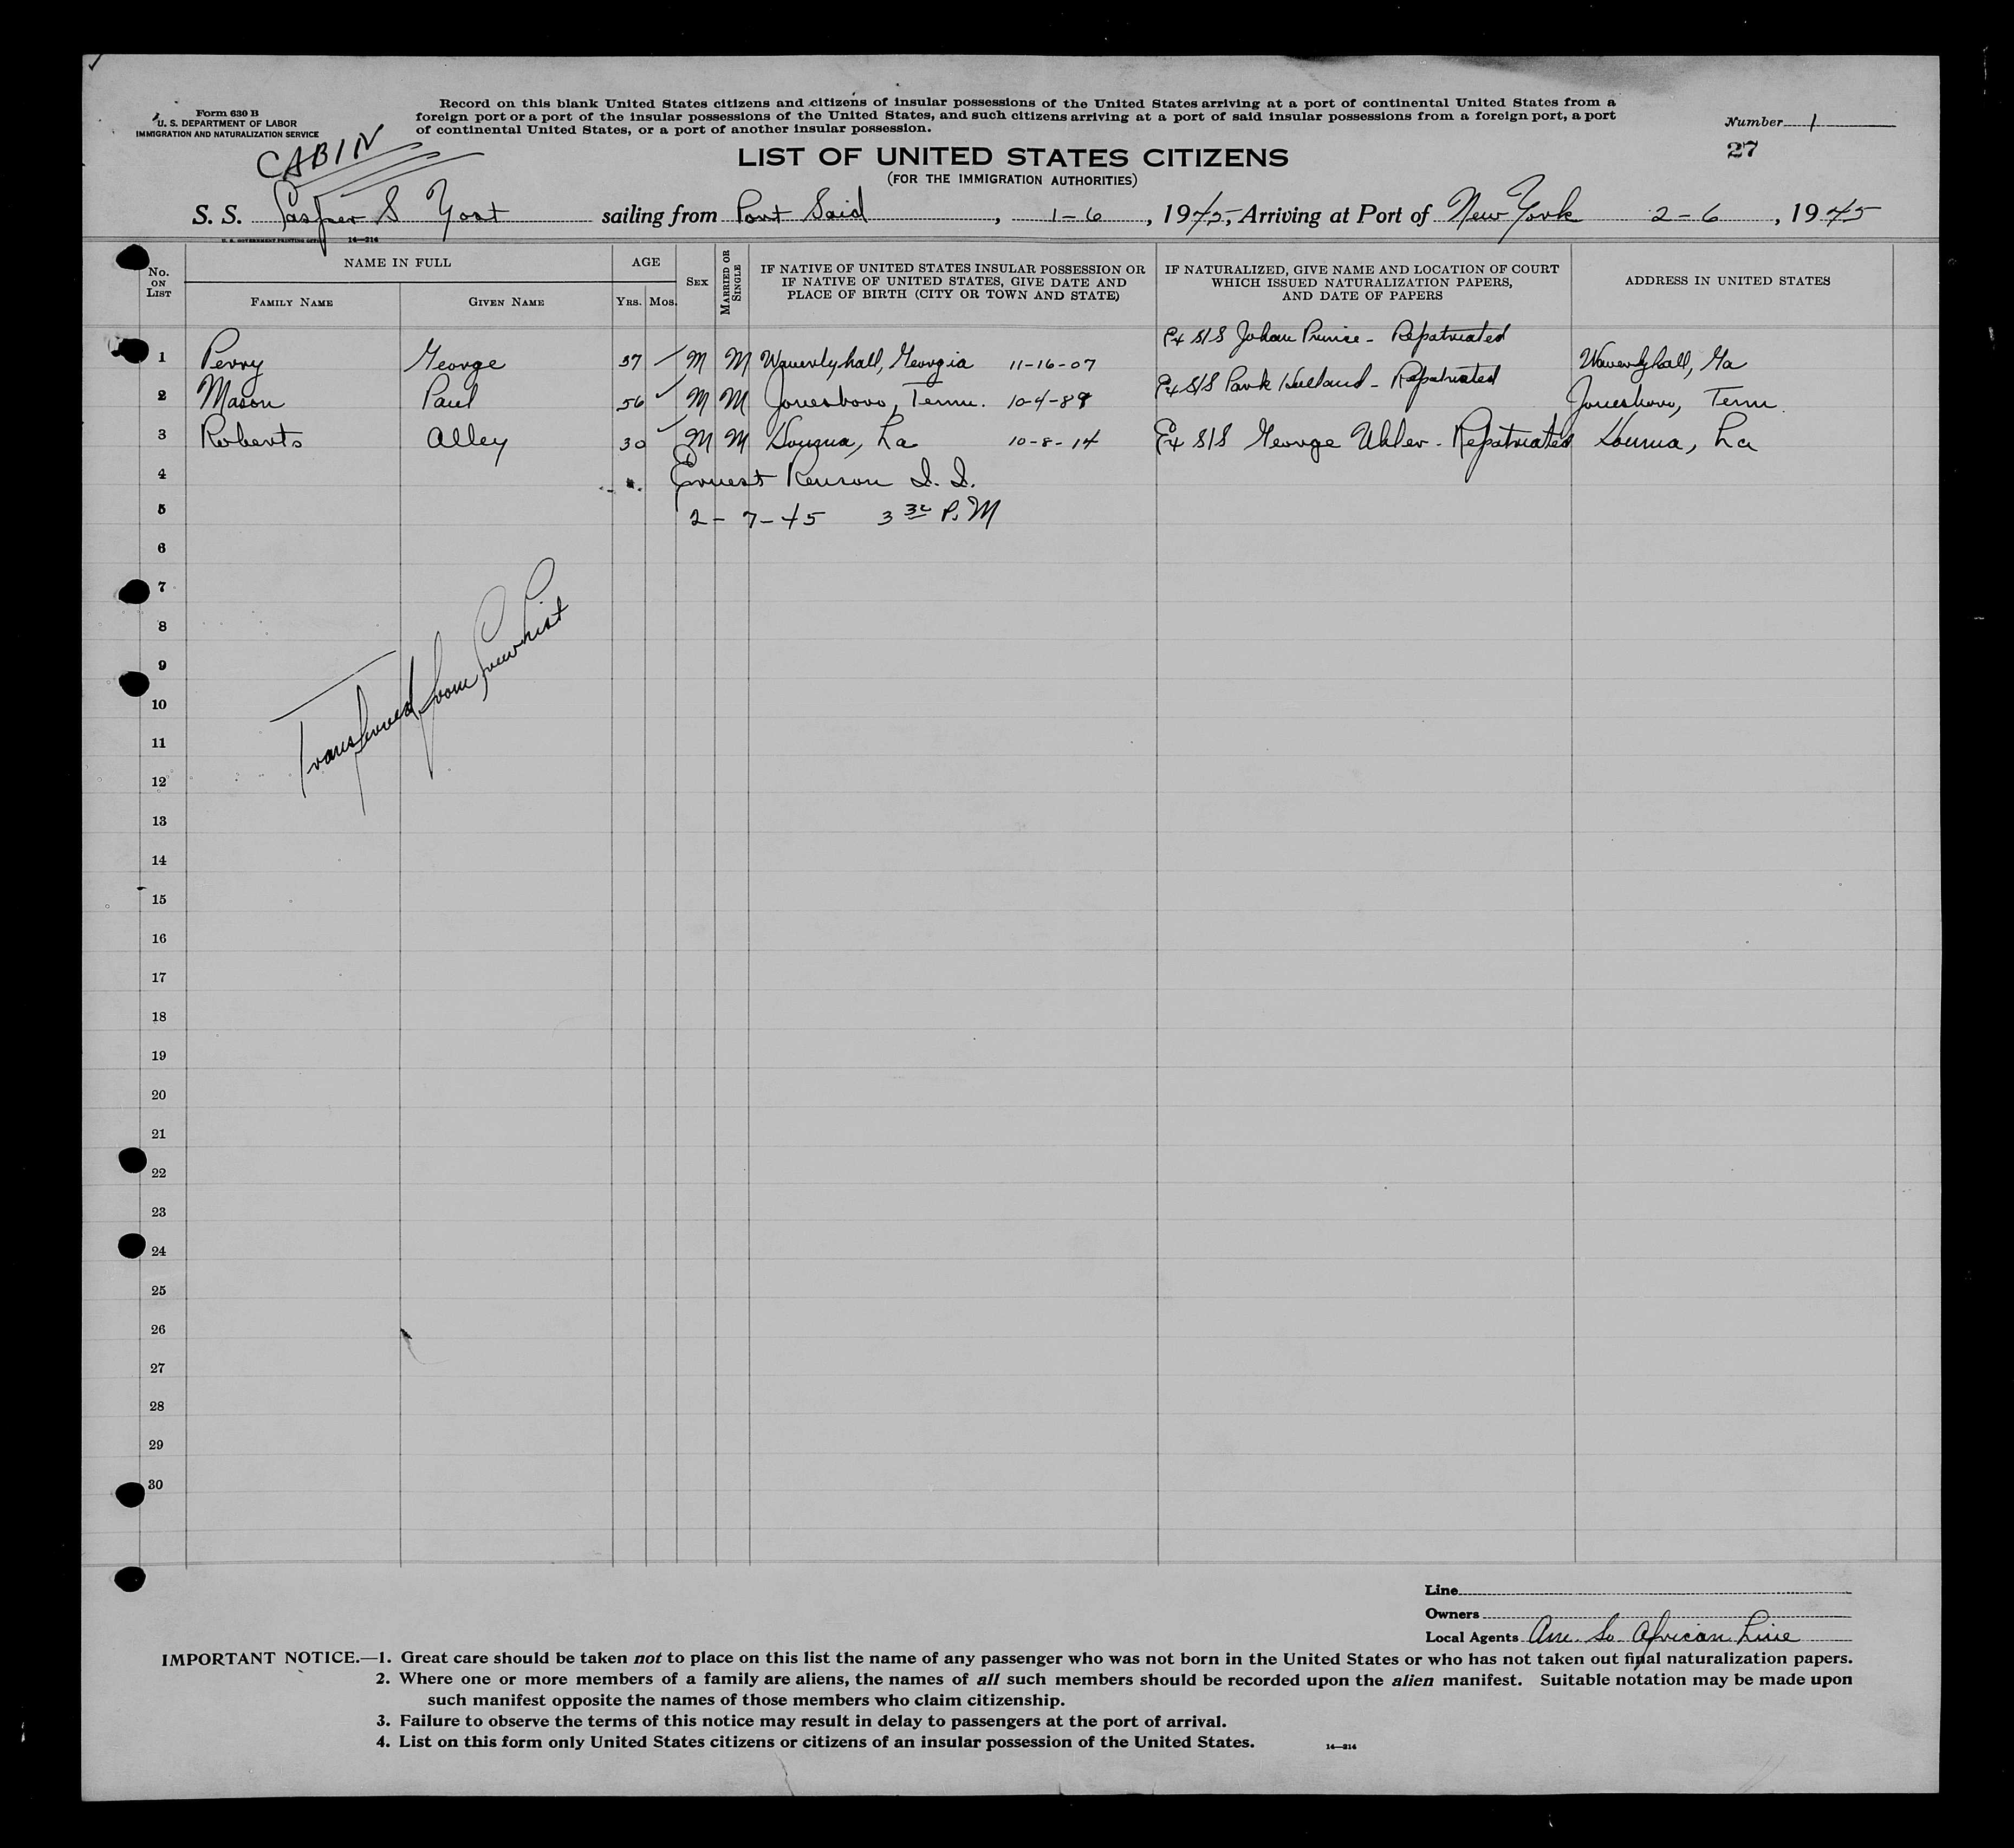 Form 630 B
U. S. DEPARTMENT OF LABOR
IMMIGRATION AND NATURALIZATION SERVICE
Record on this blank United States citizens and citizens of insular possessions of the United States arriving at a port of continental United States from a
foreign port or a port of the insular possessions of the United States, and such citizens arriving at a port of said insular possessions from a foreign port, a port
of continental United States, or a port of another insular possession.
Number 1
27
CABIN
LIST OF UNITED STATES CITIZENS
(FOR THE IMMIGRATION AUTHORITIES)
S. S. Casper S Yost sailing from Port Said, 1-6, 1945, Arriving at Port of New York 2-6, 1945
U. S. GOVERNMENT PRINTING OFFICE 14—214
No. ON LIST
NAME IN FULL
FAMILY NAME
GIVEN NAME
AGE
YRS. MOS.
SEX
MARRIED OR SINGLE
IF NATIVE OF UNITED STATES INSULAR POSSESSION OR
IF NATIVE OF UNITED STATES, GIVE DATE AND
PLACE OF BIRTH (CITY OR TOWN AND STATE)
IF NATURALIZED, GIVE NAME AND LOCATION OF COURT
WHICH ISSUED NATURALIZATION PAPERS,
AND DATE OF PAPERS
ADDRESS IN UNITED STATES
1 Perry George 37 M M Waverlyhall, Georgia 11-16-07 Ex S/S Johan Prinise - Repatriated Waverlyhall, Ga
2 Mason Paul 56 M M Jonesboro, Tenn. 10-4-88 Ex S/S Park Holland - Repatriated Jonesboro, Tenn.
3 Roberts Alley 30 M M Houma, La 10-8-14 Ex S/S George Uhler - Repatriated Houma, La
4 Ernest I. I.
5 2-7-45 3 30 P.M
6
7
8
9
10
11
12
Transferred from Crew List
13
14
15
16
17
18
19
20
21
22
23
24
25
26
27
28
29
30
Line
Owners
Local Agents Am. So. African Line
IMPORTANT NOTICE.—1. Great care should be taken not to place on this list the name of any passenger who was not born in the United States or who has not taken out final naturalization papers.
2. Where one or more members of a family are aliens, the names of all such members should be recorded upon the alien manifest. Suitable notation may be made upon
such manifest opposite the names of those members who claim citizenship.
3. Failure to observe the terms of this notice may result in delay to passengers at the port of arrival.
4. List on this form only United States citizens or citizens of an insular possession of the United States.
14—214